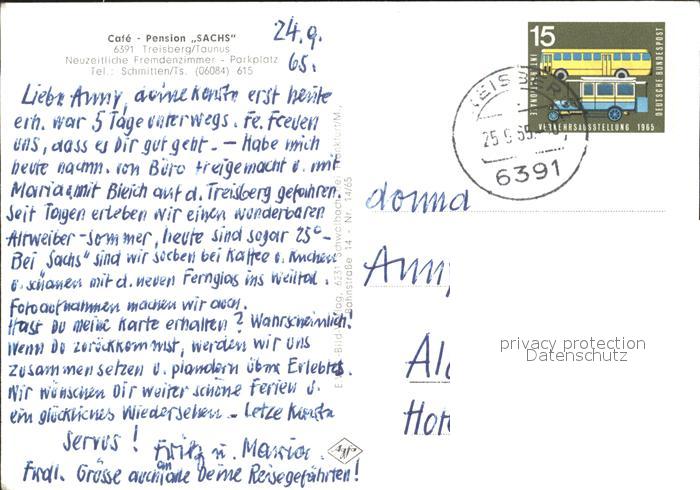 Café - Pension „SACHS“
6391 Treisberg/Taunus
Neuzeitliche Fremdenzimmer - Parkplatz
Tel.: Schmitten/Ts. (06084) 615
24.9.
65.
Liebe Anny, deine Karte erst heute
erh. war 5 Tage unterwegs. Fr. Freuen
uns, dass es Dir gut geht. – Habe mich
heute nachm. von Büro freigemacht u. mit
Maria mit Bleich auf d. Treisberg gefahren.
Seit Tagen erleben wir einen wunderbaren
Altweiber-Sommer, heute sind sogar 25°–
Bei „Sachs“ sind wir soeben bei Kaffee u. Kuchen
u. schauen mit d. neuen Fernglas ins Weiltal.
Fotoaufnahmen machen wir auch.
Hast Du meine Karte erhalten? Wahrscheinlich!
Wenn Du zurückkommst, werden wir uns
zusammen setzen u. plaudern übers Erlebtes.
Wir wünschen Dir weiter schöne Ferien u.
ein glückliches Wiedersehen. – Letze Karte
Servus! Fritz u. Maria.
Frdl. Grüsse auch an alle Deine Reisegefährten!
6231 Schwalbach
Bahnstraße 14 - Nr. 14/65
15
INTERNATIONALE
VERKEHRSAUSSTELLUNG 1965
DEUTSCHE BUNDESPOST
6391
donna
Anny
privacy protection
Datenschutz